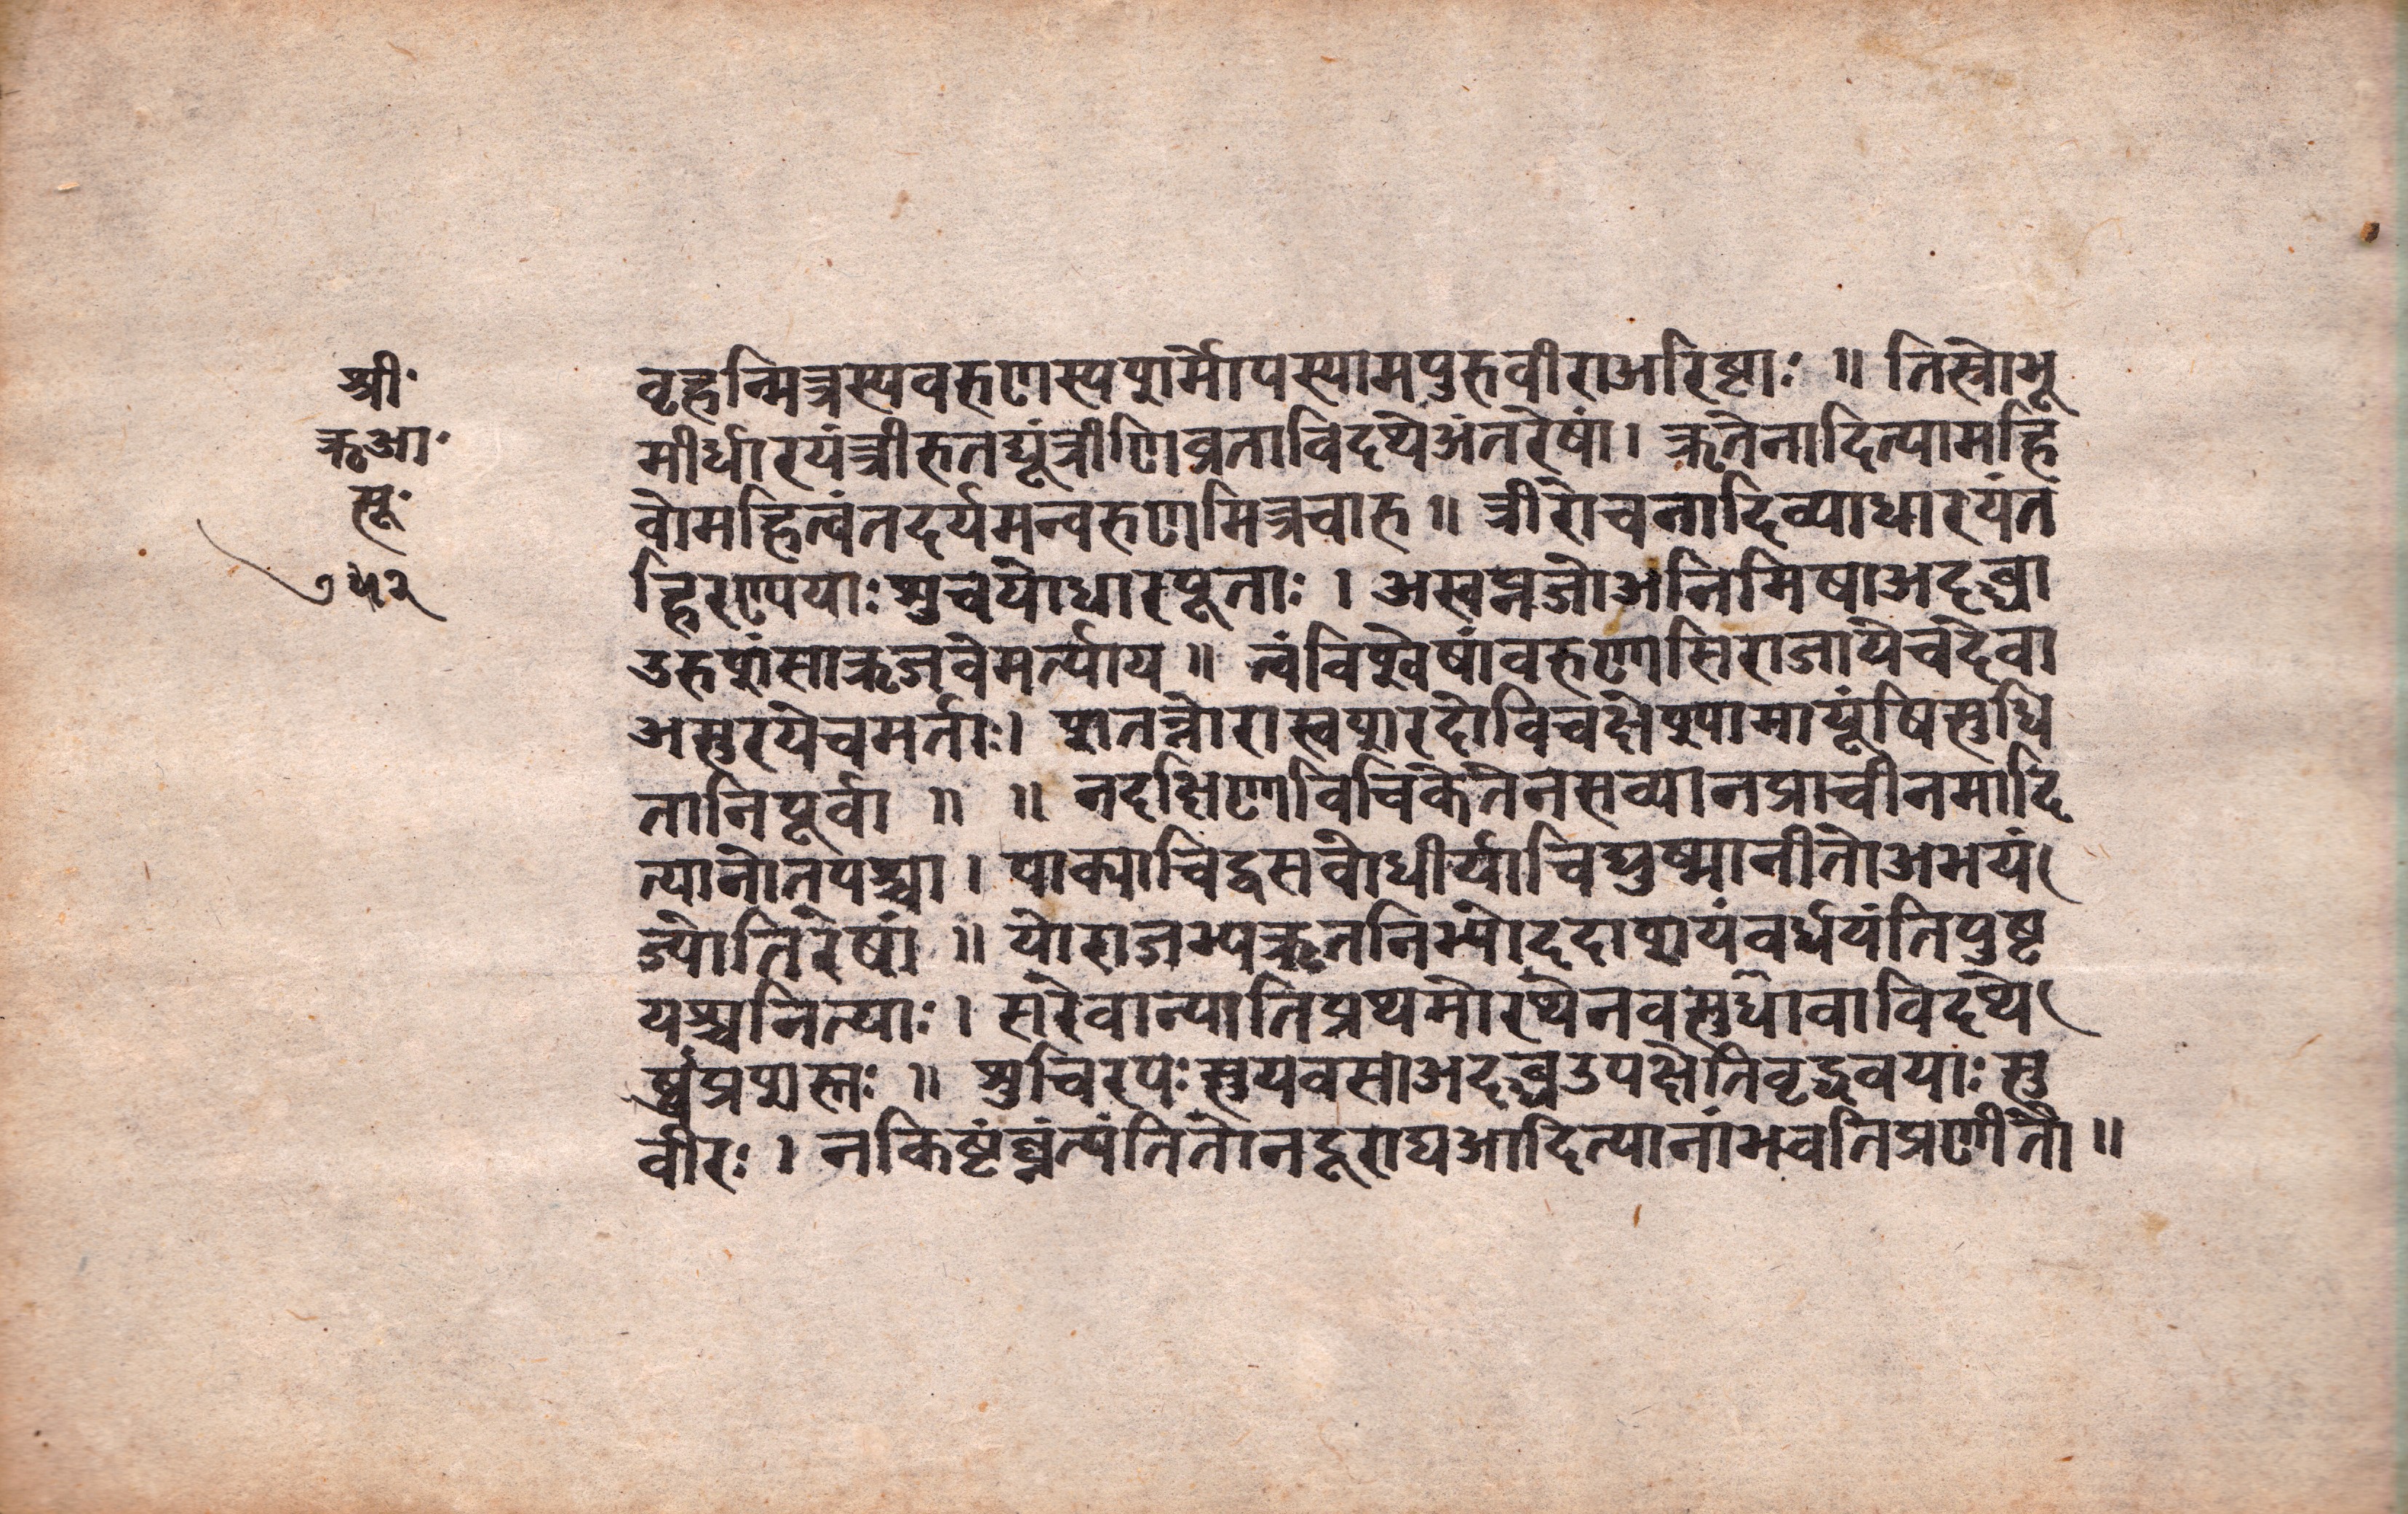 श्रीः
ऋआः
सूः
७५२
वृहन्मित्रस्यवरुणस्यशर्मोपस्यामपुरुवीराअरिष्टाः ॥ तिस्त्रोभू
मीर्धारयंत्रीरुतद्यूंत्रीणिव्रताविदथेअंतरेषां। ऋतेनादित्यामहि
वोमहित्वंतदर्यमन्वरुणमित्रचारु ॥ त्रीरोचनादिव्याधारयंत
हिरण्ययाः शुचयोधारपूताः । अस्वप्नजोअनिमिषाअदब्धा
उरुशंसाऋजवेमर्त्याय ॥ त्वंविश्वेषांवरुणासिराजायेचदेवा
असुरयेचमर्ताः। शतन्नोरास्वशरदोविचक्षेश्यामायूंषिसुधि
तानिपूर्वा ॥ ॥ नदक्षिणाविचिकेतेनसव्यानप्राचीनमादि
त्यानोतपश्चा । पाक्याचिद्वसवोधीर्याचिद्युष्मानीतोअभयं
ज्योतिरेषां ॥ योराजभ्यऋतनिभ्योददाशयंवर्धयंतिपुष्ट
यश्चनित्याः । सरेवान्यातिप्रथमोरथेनवसुधावाविदथे
षुप्रशस्तः ॥ शुचिरपः सुयवसाअदब्धउपक्षेतिवृद्धवयाः सु
वीरः । नकिष्टंघ्नंत्यंतितोनदूराद्यआदित्यानांभवतिप्रणीतौ ॥